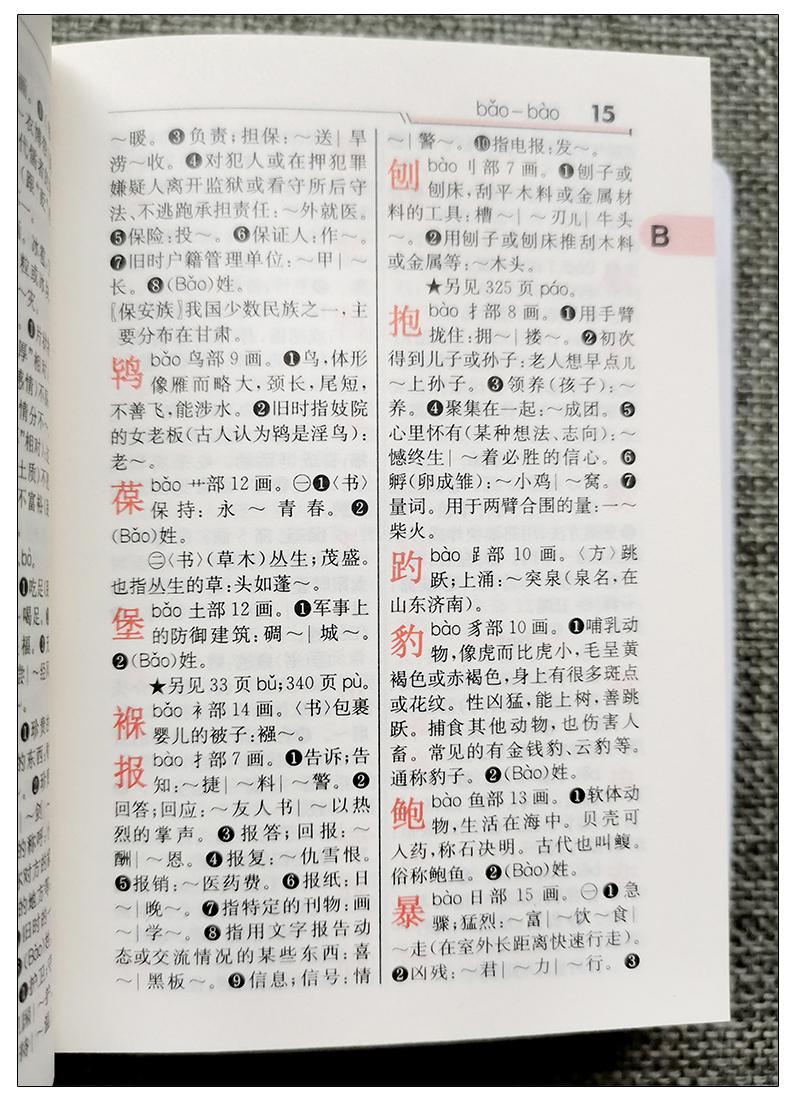 bǎo－bào 15
～暖。❸负责；担保：～送｜旱
涝～收。❹对犯人或在押犯罪
嫌疑人离开监狱或看守所后守
法、不逃跑承担责任：～外就医。
❺保险：投～。❻保证人：作～。
❼旧时户籍管理单位：～甲｜～
长。❽(Bǎo)姓。
〖保安族〗我国少数民族之一，主
要分布在甘肃。
鸨 bǎo 鸟部 9 画。❶鸟，体形
像雁而略大，颈长，尾短，
不善飞，能涉水。❷旧时指妓院
的女老板（古人认为鸨是淫鸟）：
老～。
葆 bǎo 艹部 12 画。㊀❶〈书〉
保持：永～青春。❷
(Bǎo)姓。
㊁〈书〉（草木）丛生；茂盛。
也指丛生的草：头如蓬～。
堡 bǎo 土部 12 画。❶军事上
的防御建筑：碉～｜城～。
❷(Bǎo)姓。
★另见 33 页 bǔ；340 页 pù。
褓 bǎo 衤部 14 画。〈书〉包裹
婴儿的被子：襁～。
报 bào 扌部 7 画。❶告诉；告
知：～捷｜～料｜～警。❷
回答；回应：～友人书｜～以热
烈的掌声。❸报答；回报：～
酬｜～恩。❹报复：～仇雪恨。
❺报销：～医药费。❻报纸：日
～｜晚～。❼指特定的刊物：画
～｜学～。❽指用文字报告动
态或交流情况的某些东西：喜
～｜黑板～。❾信息；信号：情
～｜警～。❿指电报；发～。
刨 bào 刂部 7 画。❶刨子或
刨床，刮平木料或金属材
料的工具：槽～｜～刃儿｜牛头
～。❷用刨子或刨床推刮木料
或金属等：～木头。
★另见 325 页 páo。
抱 bào 扌部 8 画。❶用手臂
拢住：拥～｜搂～。❷初次
得到儿子或孙子：老人想早点儿
～上孙子。❸领养（孩子）：～
养。❹聚集在一起：～成团。❺
心里怀有（某种想法、志向）：～
憾终生｜～着必胜的信心。❻
孵（卵成雏）：～小鸡｜～窝。❼
量词。用于两臂合围的量：一～
柴火。
趵 bào 𧾷部 10 画。〈方〉跳
跃；上涌：～突泉（泉名，在
山东济南）。
豹 bào 豸部 10 画。❶哺乳动
物，像虎而比虎小，毛呈黄
褐色或赤褐色，身上有很多斑点
或花纹。性凶猛，能上树，善跳
跃。捕食其他动物，也伤害人
畜。常见的有金钱豹、云豹等。
通称豹子。❷(Bào)姓。
鲍 bào 鱼部 13 画。❶软体动
物，生活在海中。贝壳可
入药，称石决明。古代也叫鳆。
俗称鲍鱼。❷(Bào)姓。
暴 bào 日部 15 画。㊀❶急
骤；猛烈：～富｜～饮～食｜
～走（在室外长距离快速行走）。
❷凶残：～君｜～力｜～行。❸
B